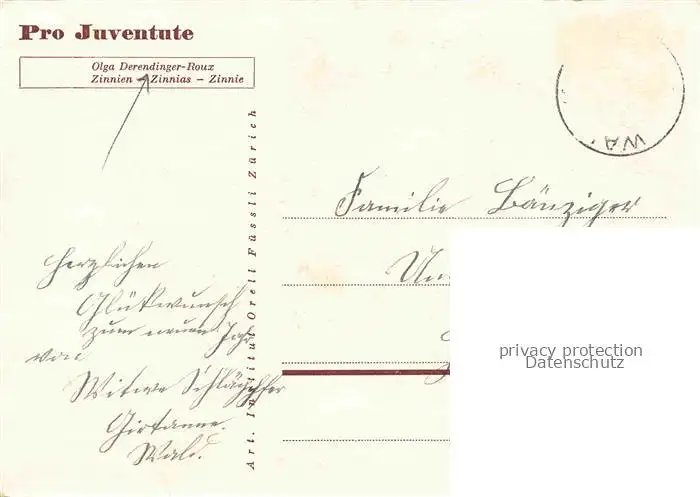 Pro Juventute
Olga Derendinger-Roux
Zinnien – Zinnias – Zinnie
Art. Institut Orell Füssli Zürich
WA
Familie Bänziger
Un
Herzlichen
Glükwunsch
zum neuen Jahr
von
Witwe Schläpfer
Girtanne.
Wald.
privacy protection
Datenschutz